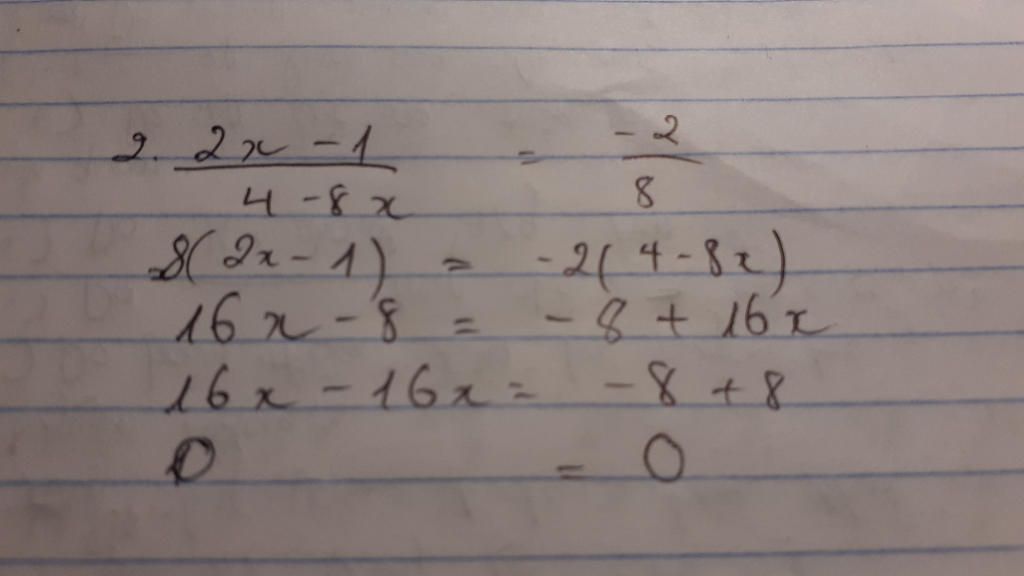 2. (2x - 1)/(4 - 8x) = -2/8
8(2x - 1) = -2(4 - 8x)
16x - 8 = -8 + 16x
16x - 16x = -8 + 8
0 = 0